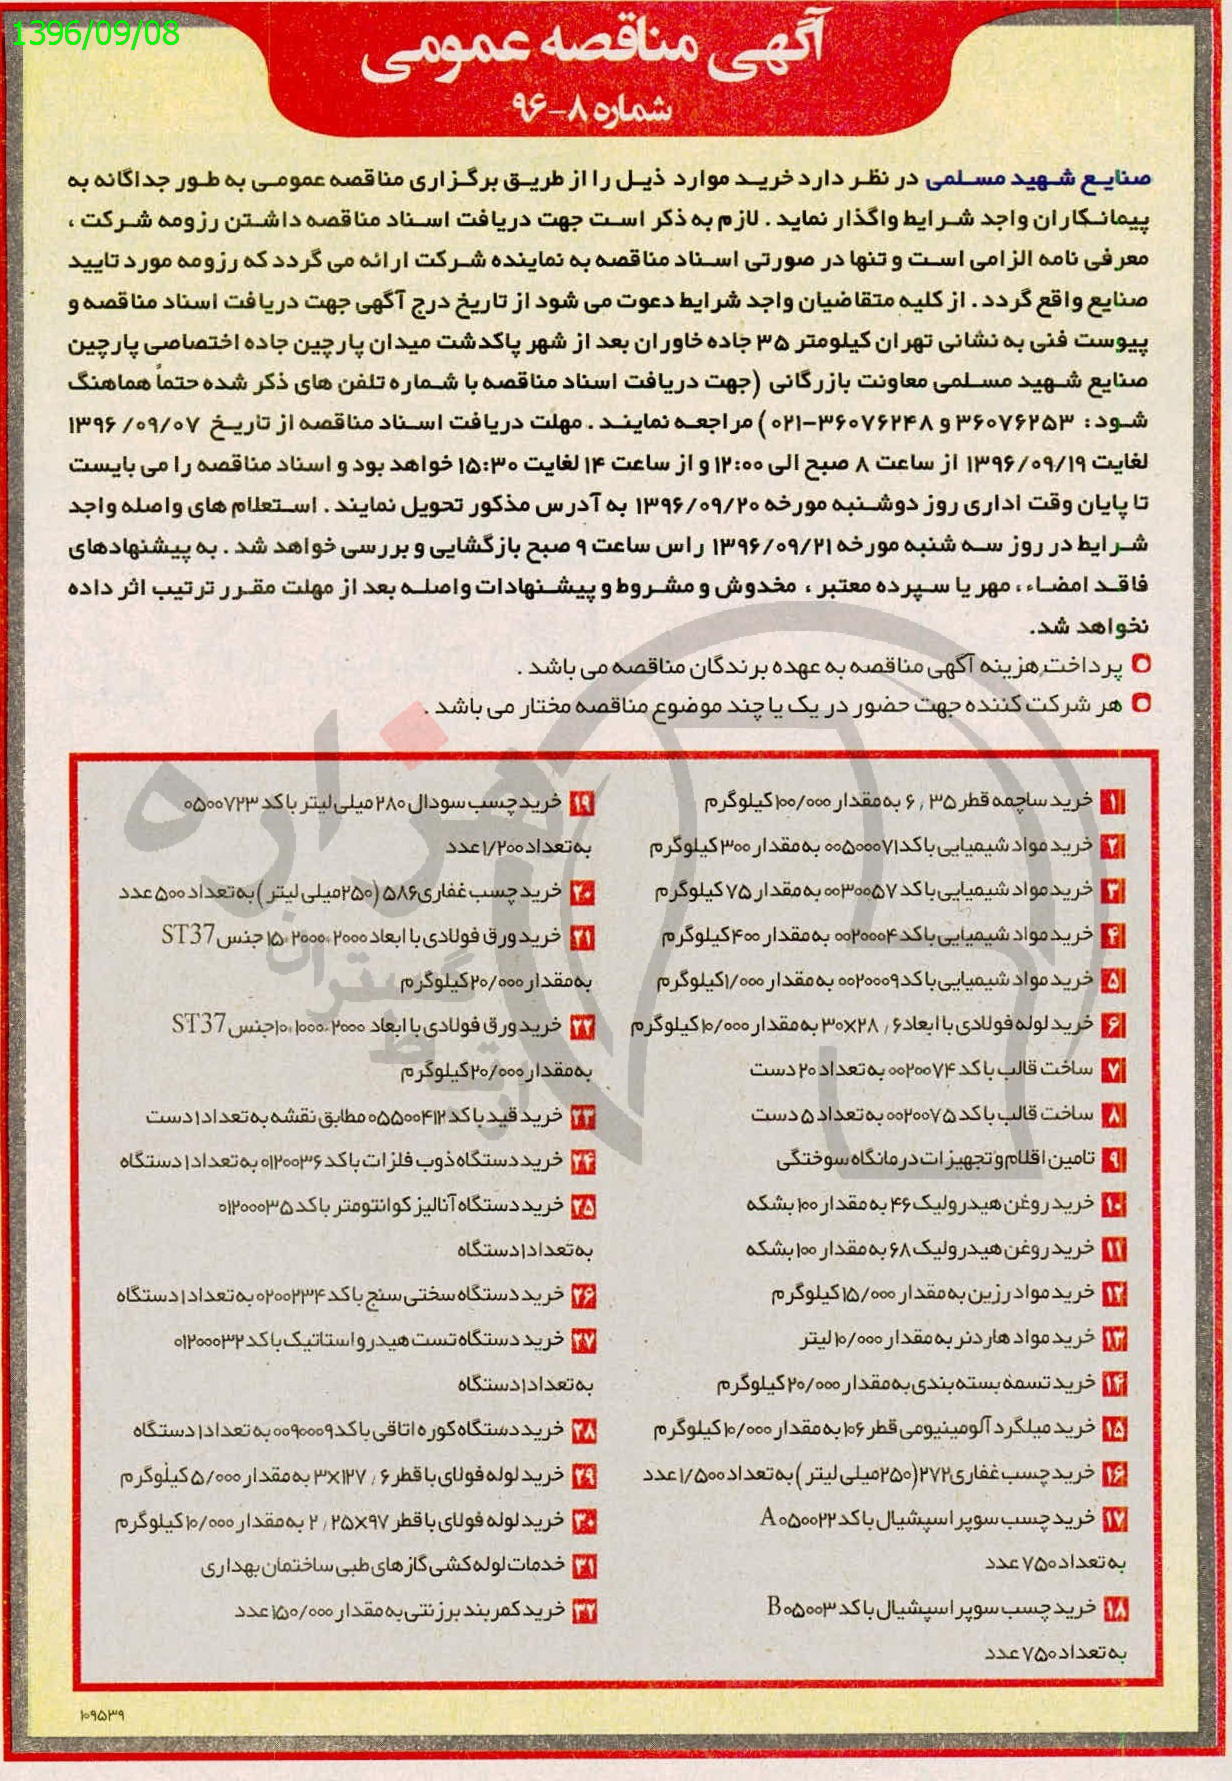 1396/09/08
آگهی مناقصه عمومی
شماره ۸-۹۶
صنایع شهید مسلمی در نظر دارد خرید موارد ذیل را از طریق برگزاری مناقصه عمومی به طور جداگانه به
پیمانکاران واجد شرایط واگذار نماید . لازم به ذکر است جهت دریافت اسناد مناقصه داشتن رزومه شرکت ،
معرفی نامه الزامی است و تنها در صورتی اسناد مناقصه به نماینده شرکت ارائه می گردد که رزومه مورد تایید
صنایع واقع گردد . از کلیه متقاضیان واجد شرایط دعوت می شود از تاریخ درج آگهی جهت دریافت اسناد مناقصه و
پیوست فنی به نشانی تهران کیلومتر ۳۵ جاده خاوران بعد از شهر پاکدشت میدان پارچین جاده اختصاصی پارچین
صنایع شهید مسلمی معاونت بازرگانی (جهت دریافت اسناد مناقصه با شماره تلفن های ذکر شده حتماً هماهنگ
شود : ۳۶۰۷۶۲۵۳ و ۳۶۰۷۶۲۴۸-۰۲۱ ) مراجعه نمایند . مهلت دریافت اسناد مناقصه از تاریخ ۱۳۹۶/۰۹/۰۷
لغایت ۱۳۹۶/۰۹/۱۹ از ساعت ۸ صبح الی ۱۲:۰۰ و از ساعت ۱۴ لغایت ۱۵:۳۰ خواهد بود و اسناد مناقصه را می بایست
تا پایان وقت اداری روز دوشنبه مورخه ۱۳۹۶/۰۹/۲۰ به آدرس مذکور تحویل نمایند . استعلام های واصله واجد
شرایط در روز سه شنبه مورخه ۱۳۹۶/۰۹/۲۱ راس ساعت ۹ صبح بازگشایی و بررسی خواهد شد . به پیشنهادهای
فاقد امضاء ، مهر یا سپرده معتبر ، مخدوش و مشروط و پیشنهادات واصله بعد از مهلت مقرر ترتیب اثر داده
نخواهد شد.
پرداخت هزینه آگهی مناقصه به عهده برندگان مناقصه می باشد .
هر شرکت کننده جهت حضور در یک یا چند موضوع مناقصه مختار می باشد .
۱ خرید ساچمه قطر ۶٫۳۵ به مقدار ۱۰۰/۰۰۰ کیلوگرم
۲ خرید مواد شیمیایی با کد ۰۰۵۰۰۰۷۱ به مقدار ۳۰۰ کیلوگرم
۳ خرید مواد شیمیایی با کد ۰۰۳۰۰۵۷ به مقدار ۷۵ کیلوگرم
۴ خرید مواد شیمیایی با کد ۰۰۲۰۰۰۴ به مقدار ۴۰۰ کیلوگرم
۵ خرید مواد شیمیایی با کد ۰۰۲۰۰۰۹ به مقدار ۱/۰۰۰ کیلوگرم
۶ خرید لوله فولادی با ابعاد ۳۰×۲۸٫۶ به مقدار ۱۰/۰۰۰ کیلوگرم
۷ ساخت قالب با کد ۰۰۲۰۰۷۴ به تعداد ۲۰ دست
۸ ساخت قالب با کد ۰۰۲۰۰۷۵ به تعداد ۵ دست
۹ تامین اقلام و تجهیزات درمانگاه سوختگی
۱۰ خرید روغن هیدرولیک ۴۶ به مقدار ۱۰۰ بشکه
۱۱ خرید روغن هیدرولیک ۶۸ به مقدار ۱۰۰ بشکه
۱۲ خرید مواد رزین به مقدار ۱۵/۰۰۰ کیلوگرم
۱۳ خرید مواد هاردنر به مقدار ۱۰/۰۰۰ لیتر
۱۴ خرید تسمه بسته بندی به مقدار ۲۰/۰۰۰ کیلوگرم
۱۵ خرید میلگرد آلومینیومی قطر ۱۰۶ به مقدار ۱۰/۰۰۰ کیلوگرم
۱۶ خرید چسب غفاری ۲۷۲ (۲۵۰ میلی لیتر ) به تعداد ۱/۵۰۰ عدد
۱۷ خرید چسب سوپر اسپشیال با کد A۰۵۰۰۲۲
به تعداد ۷۵۰ عدد
۱۸ خرید چسب سوپر اسپشیال با کد B۰۵۰۰۳
به تعداد ۷۵۰ عدد
۱۹ خرید چسب سودال ۲۸۰ میلی لیتر با کد ۰۵۰۰۷۲۳
به تعداد ۱/۲۰۰ عدد
۲۰ خرید چسب غفاری ۵۸۶ (۲۵۰ میلی لیتر ) به تعداد ۵۰۰ عدد
۲۱ خرید ورق فولادی با ابعاد ۲۰۰۰×۲۰۰۰×۱۵ جنس ST37
به مقدار ۲۰/۰۰۰ کیلوگرم
۲۲ خرید ورق فولادی با ابعاد ۲۰۰۰×۱۰۰۰×۱۰ جنس ST37
به مقدار ۲۰/۰۰۰ کیلوگرم
۲۳ خرید قید با کد ۰۵۵۰۰۴۱۲ مطابق نقشه به تعداد ۱ دست
۲۴ خرید دستگاه ذوب فلزات با کد ۰۱۲۰۰۳۶ به تعداد ۱ دستگاه
۲۵ خرید دستگاه آنالیز کوانتومتر با کد ۰۱۲۰۰۰۳۵
به تعداد ۱ دستگاه
۲۶ خرید دستگاه سختی سنج با کد ۰۲۰۰۲۳۴ به تعداد ۱ دستگاه
۲۷ خرید دستگاه تست هیدرواستاتیک با کد ۰۱۲۰۰۰۳۲
به تعداد ۱ دستگاه
۲۸ خرید دستگاه کوره اتاقی با کد ۰۰۹۰۰۰۹ به تعداد ۱ دستگاه
۲۹ خرید لوله فولای با قطر ۳×۱۲۷٫۶ به مقدار ۵/۰۰۰ کیلوگرم
۳۰ خرید لوله فولای با قطر ۲٫۲۵×۹۷ به مقدار ۱۰/۰۰۰ کیلوگرم
۳۱ خدمات لوله کشی گازهای طبی ساختمان بهداری
۳۲ خرید کمربند برزنتی به مقدار ۱۵۰/۰۰۰ عدد
۱۰۹۵۳۹
هزاره